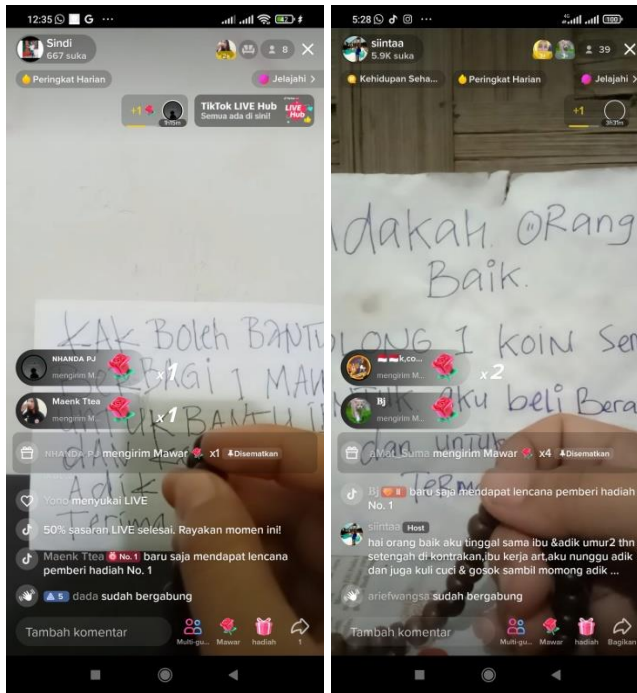 12:35 G ...
82
Sindi
667 suka
8
Peringkat Harian
Jelajahi >
+1
1:15m
TikTok LIVE Hub
Semua ada di sini!
LIVE Hub
KAK Boleh BANTU
BAGI 1 MAW
UK BANTU I
DAN
Adik
Terima
NHANDA PJ
mengirim M...
x1
Maenk Ttea
mengirim M...
x1
NHANDA PJ mengirim Mawar x1 Disematkan
Yono menyukai LIVE
50% sasaran LIVE selesai. Rayakan momen ini!
Maenk Ttea No. 1 baru saja mendapat lencana
pemberi hadiah No. 1
5 dada sudah bergabung
Tambah komentar
Multi-gu...
Mawar
hadiah
1
5:28 ...
100
siintaa
5.9K suka
39
Kehidupan Seha...
Peringkat Harian
Jelajahi >
+1
3h31m
dakah. ORang
Baik.
LONG 1 KOIN Se
aku beli Bera
dan untuk
Term
k,co...
mengirim M...
x2
Bj
mengirim M...
Suma mengirim Mawar x4 Disematkan
Bj 8 baru saja mendapat lencana pemberi hadiah
No. 1
siintaa Host
hai orang baik aku tinggal sama ibu &adik umur2 thn
setengah di kontrakan,ibu kerja art,aku nunggu adik
dan juga kuli cuci & gosok sambil momong adik ...
ariefwangsa sudah bergabung
Tambah komentar
Multi-gu...
Mawar
hadiah
Bagikan